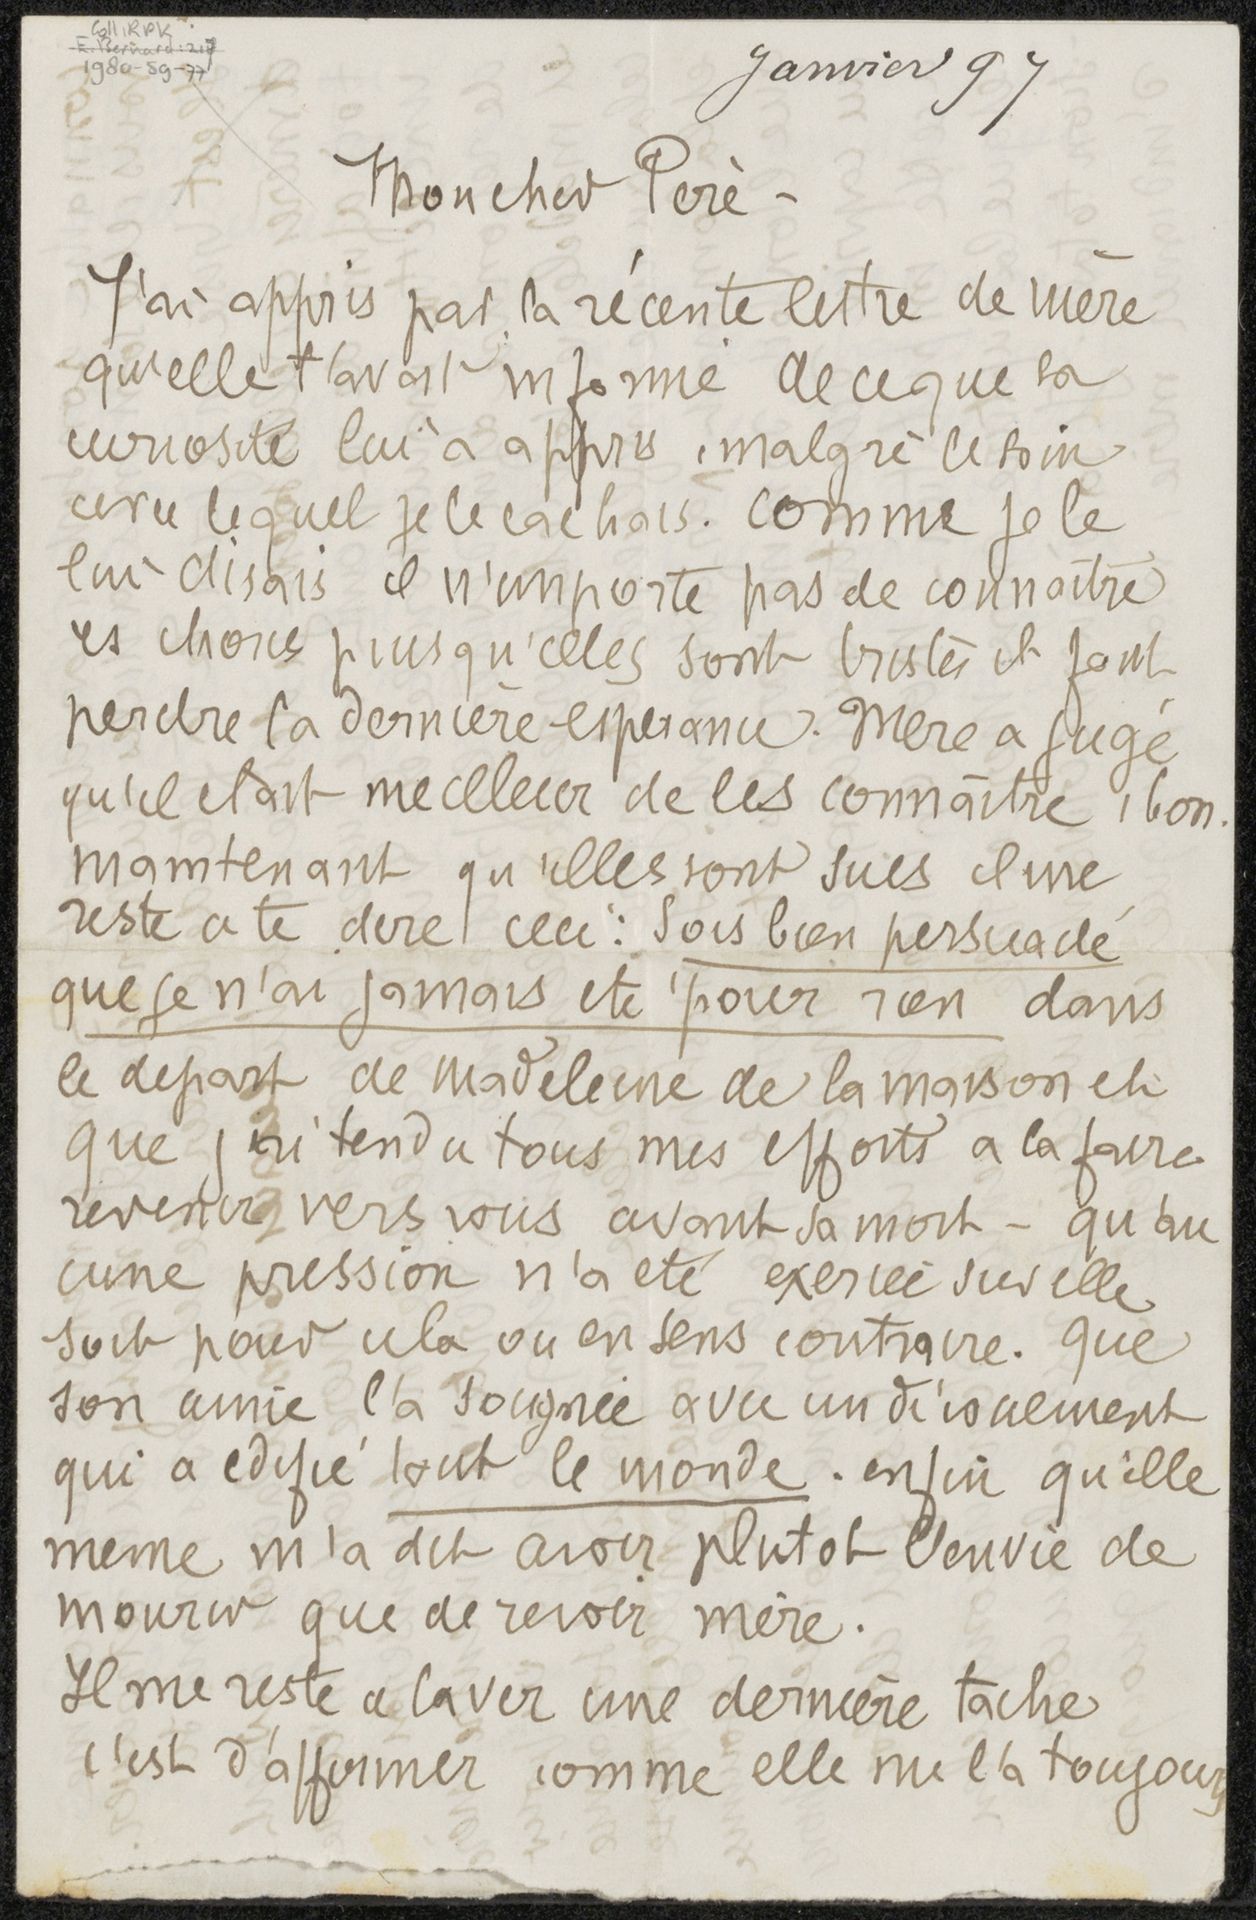 Coll. RPK
E. Bernard: 217
1980-59-77
Janvier 97
Mon cher Pere -
J'ai appris par la récente lettre de mère
qu'elle t'avait informé de ce que sa
curiosité lui a appris, malgré le soin
avec lequel je le cachais. Comme je le
lui disais il n'importe pas de connaître
les choses puisqu'elles sont tristes et font
perdre la dernière esperance. Mere a jugé
qu'il etait meilleur de les connaître, bon.
maintenant qu'elles sont sues il me
reste a te dire ceci: Sois bien persuadé
que je n'ai jamais eté pour rien dans
le depart de Madeleine de la maison et
que j'ai tendu tous mes efforts a la faire
revenir vers vous avant sa mort - qu'au
cune pression n'a eté exercée sur elle
soit pour cela ou en sens contraire. que
son amie l'a soignée avec un dévouement
qui a edifié tout le monde. enfin qu'elle
meme m'a dit avoir plutot l'envie de
mourir que de revoir mère.
Il me reste a laver une dernière tache
c'est d'affirmer comme elle me l'a toujours